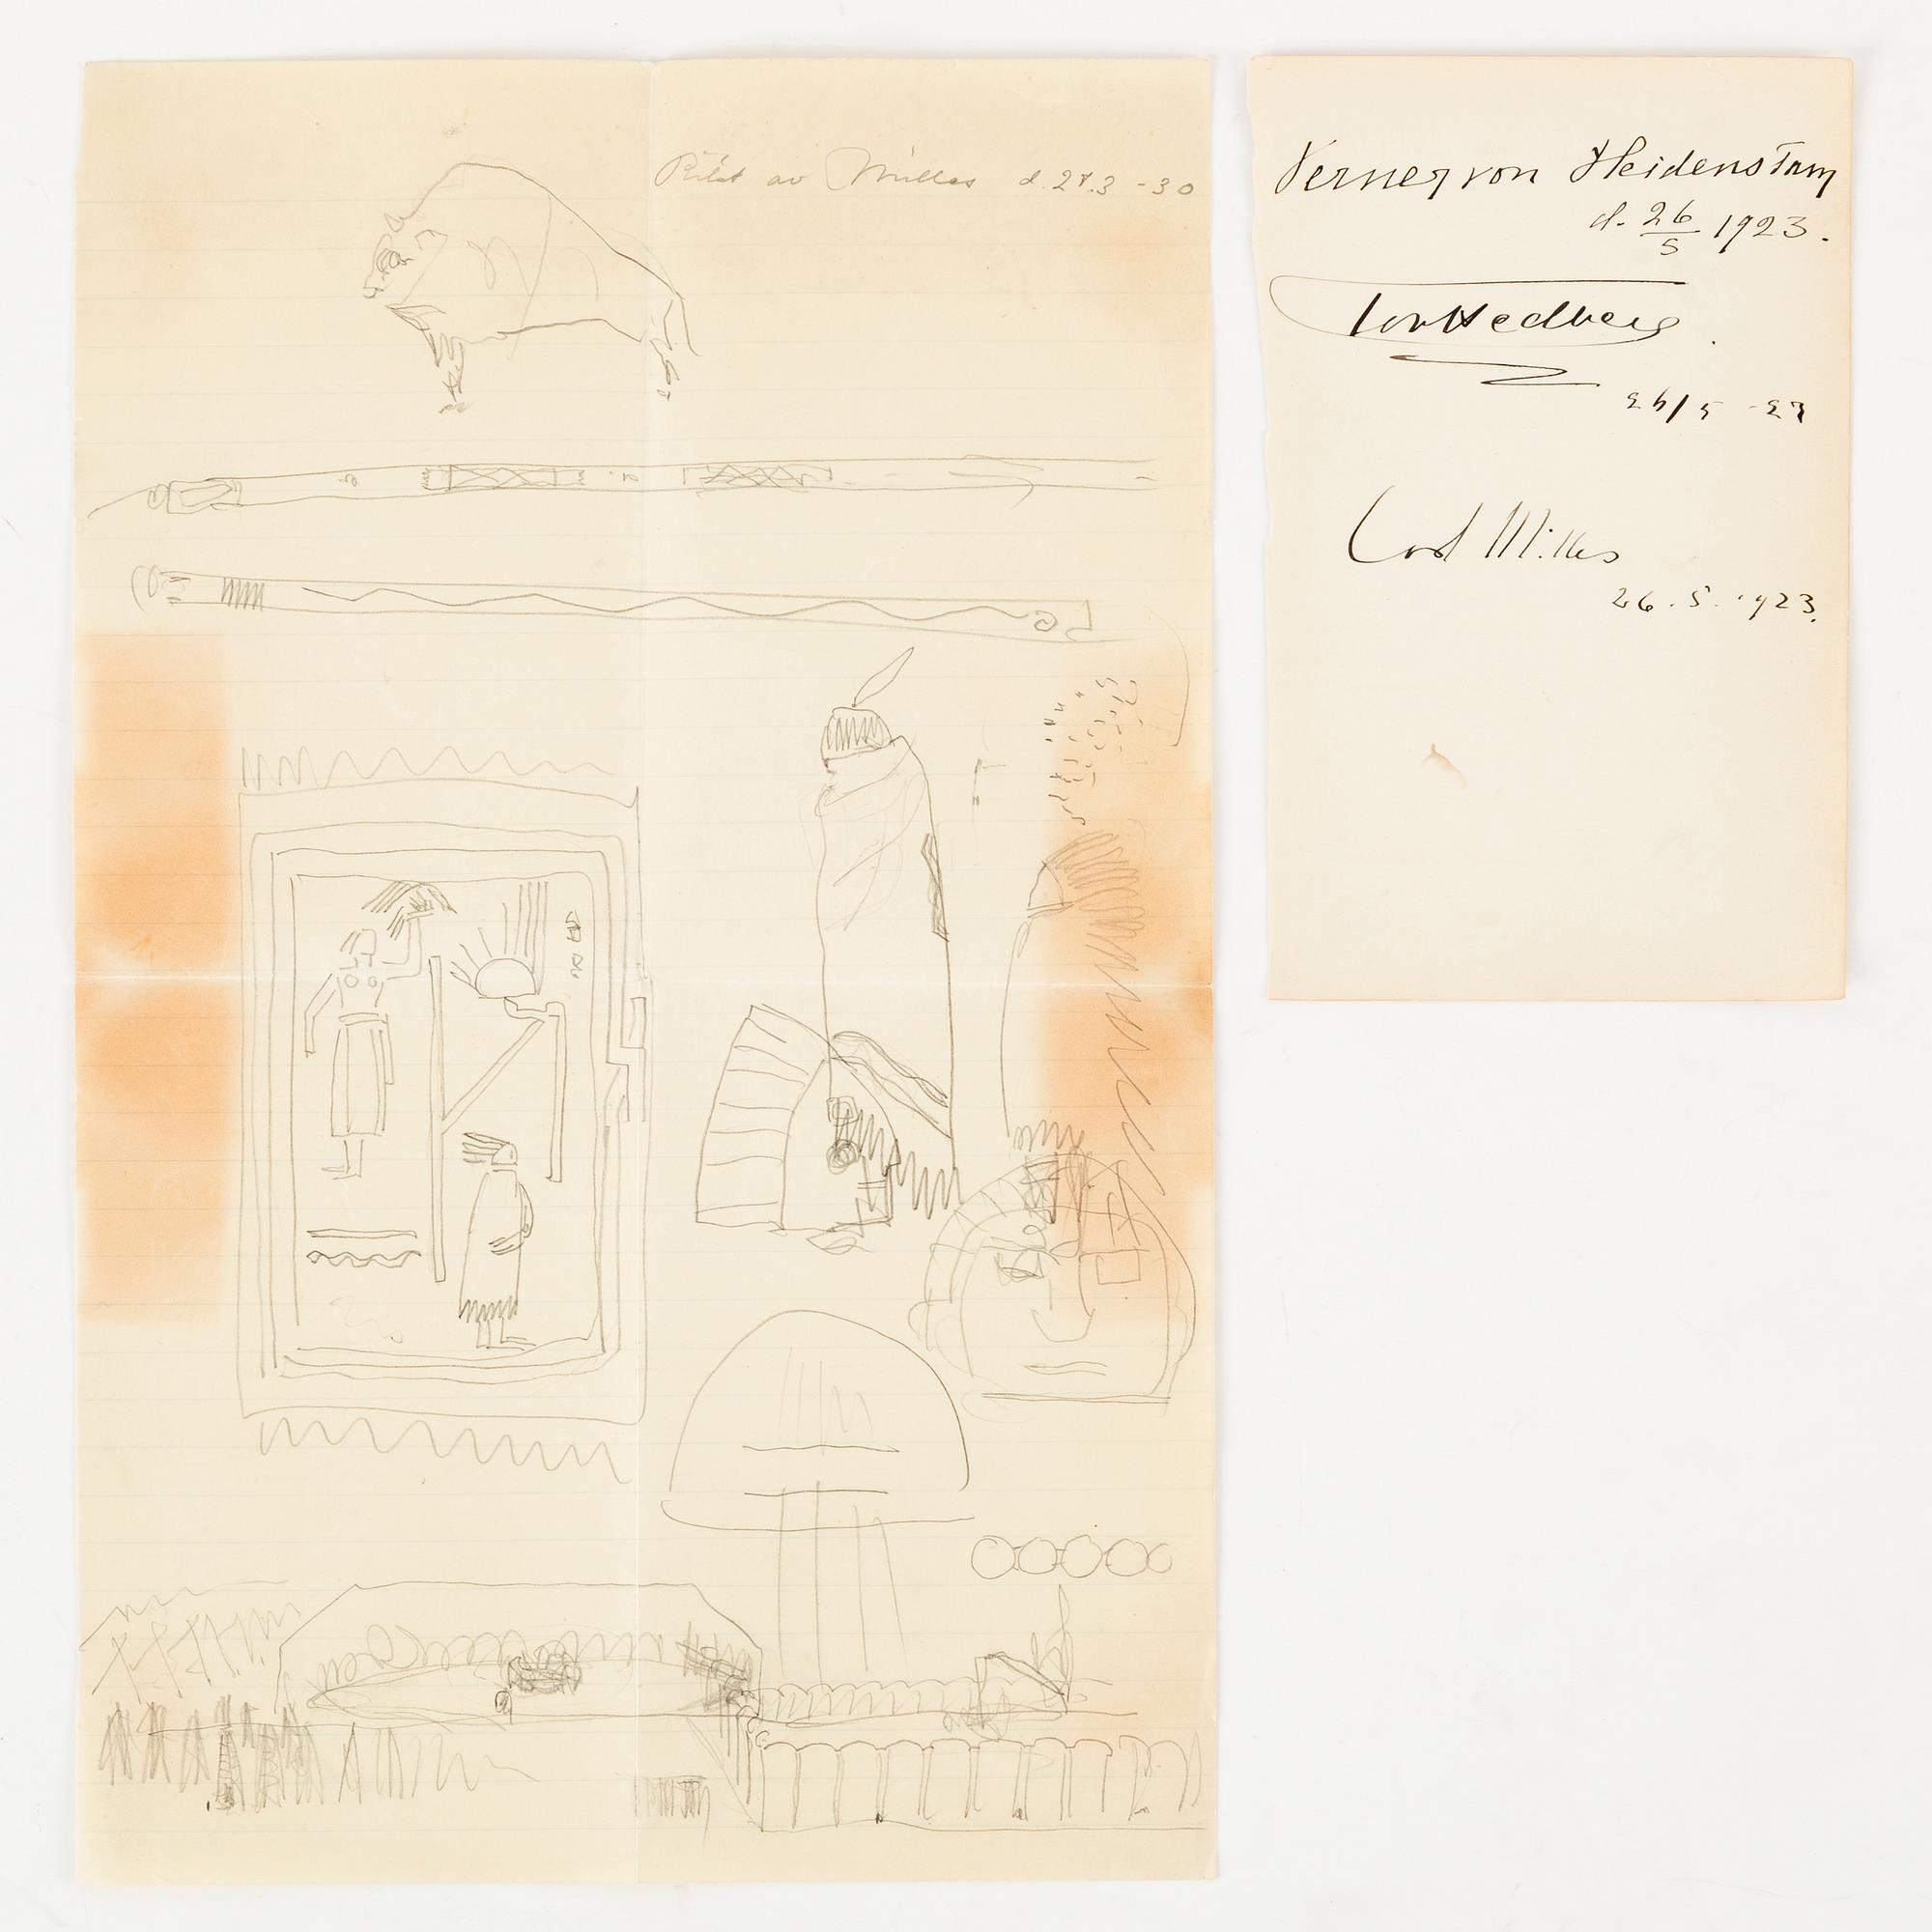 Ritat av Milles d. 27.3 -30
Verner von Heidenstam
d. 26/5 1923.
Tor Hedberg.
26/5 -23
Carl Milles
26.5.1923.